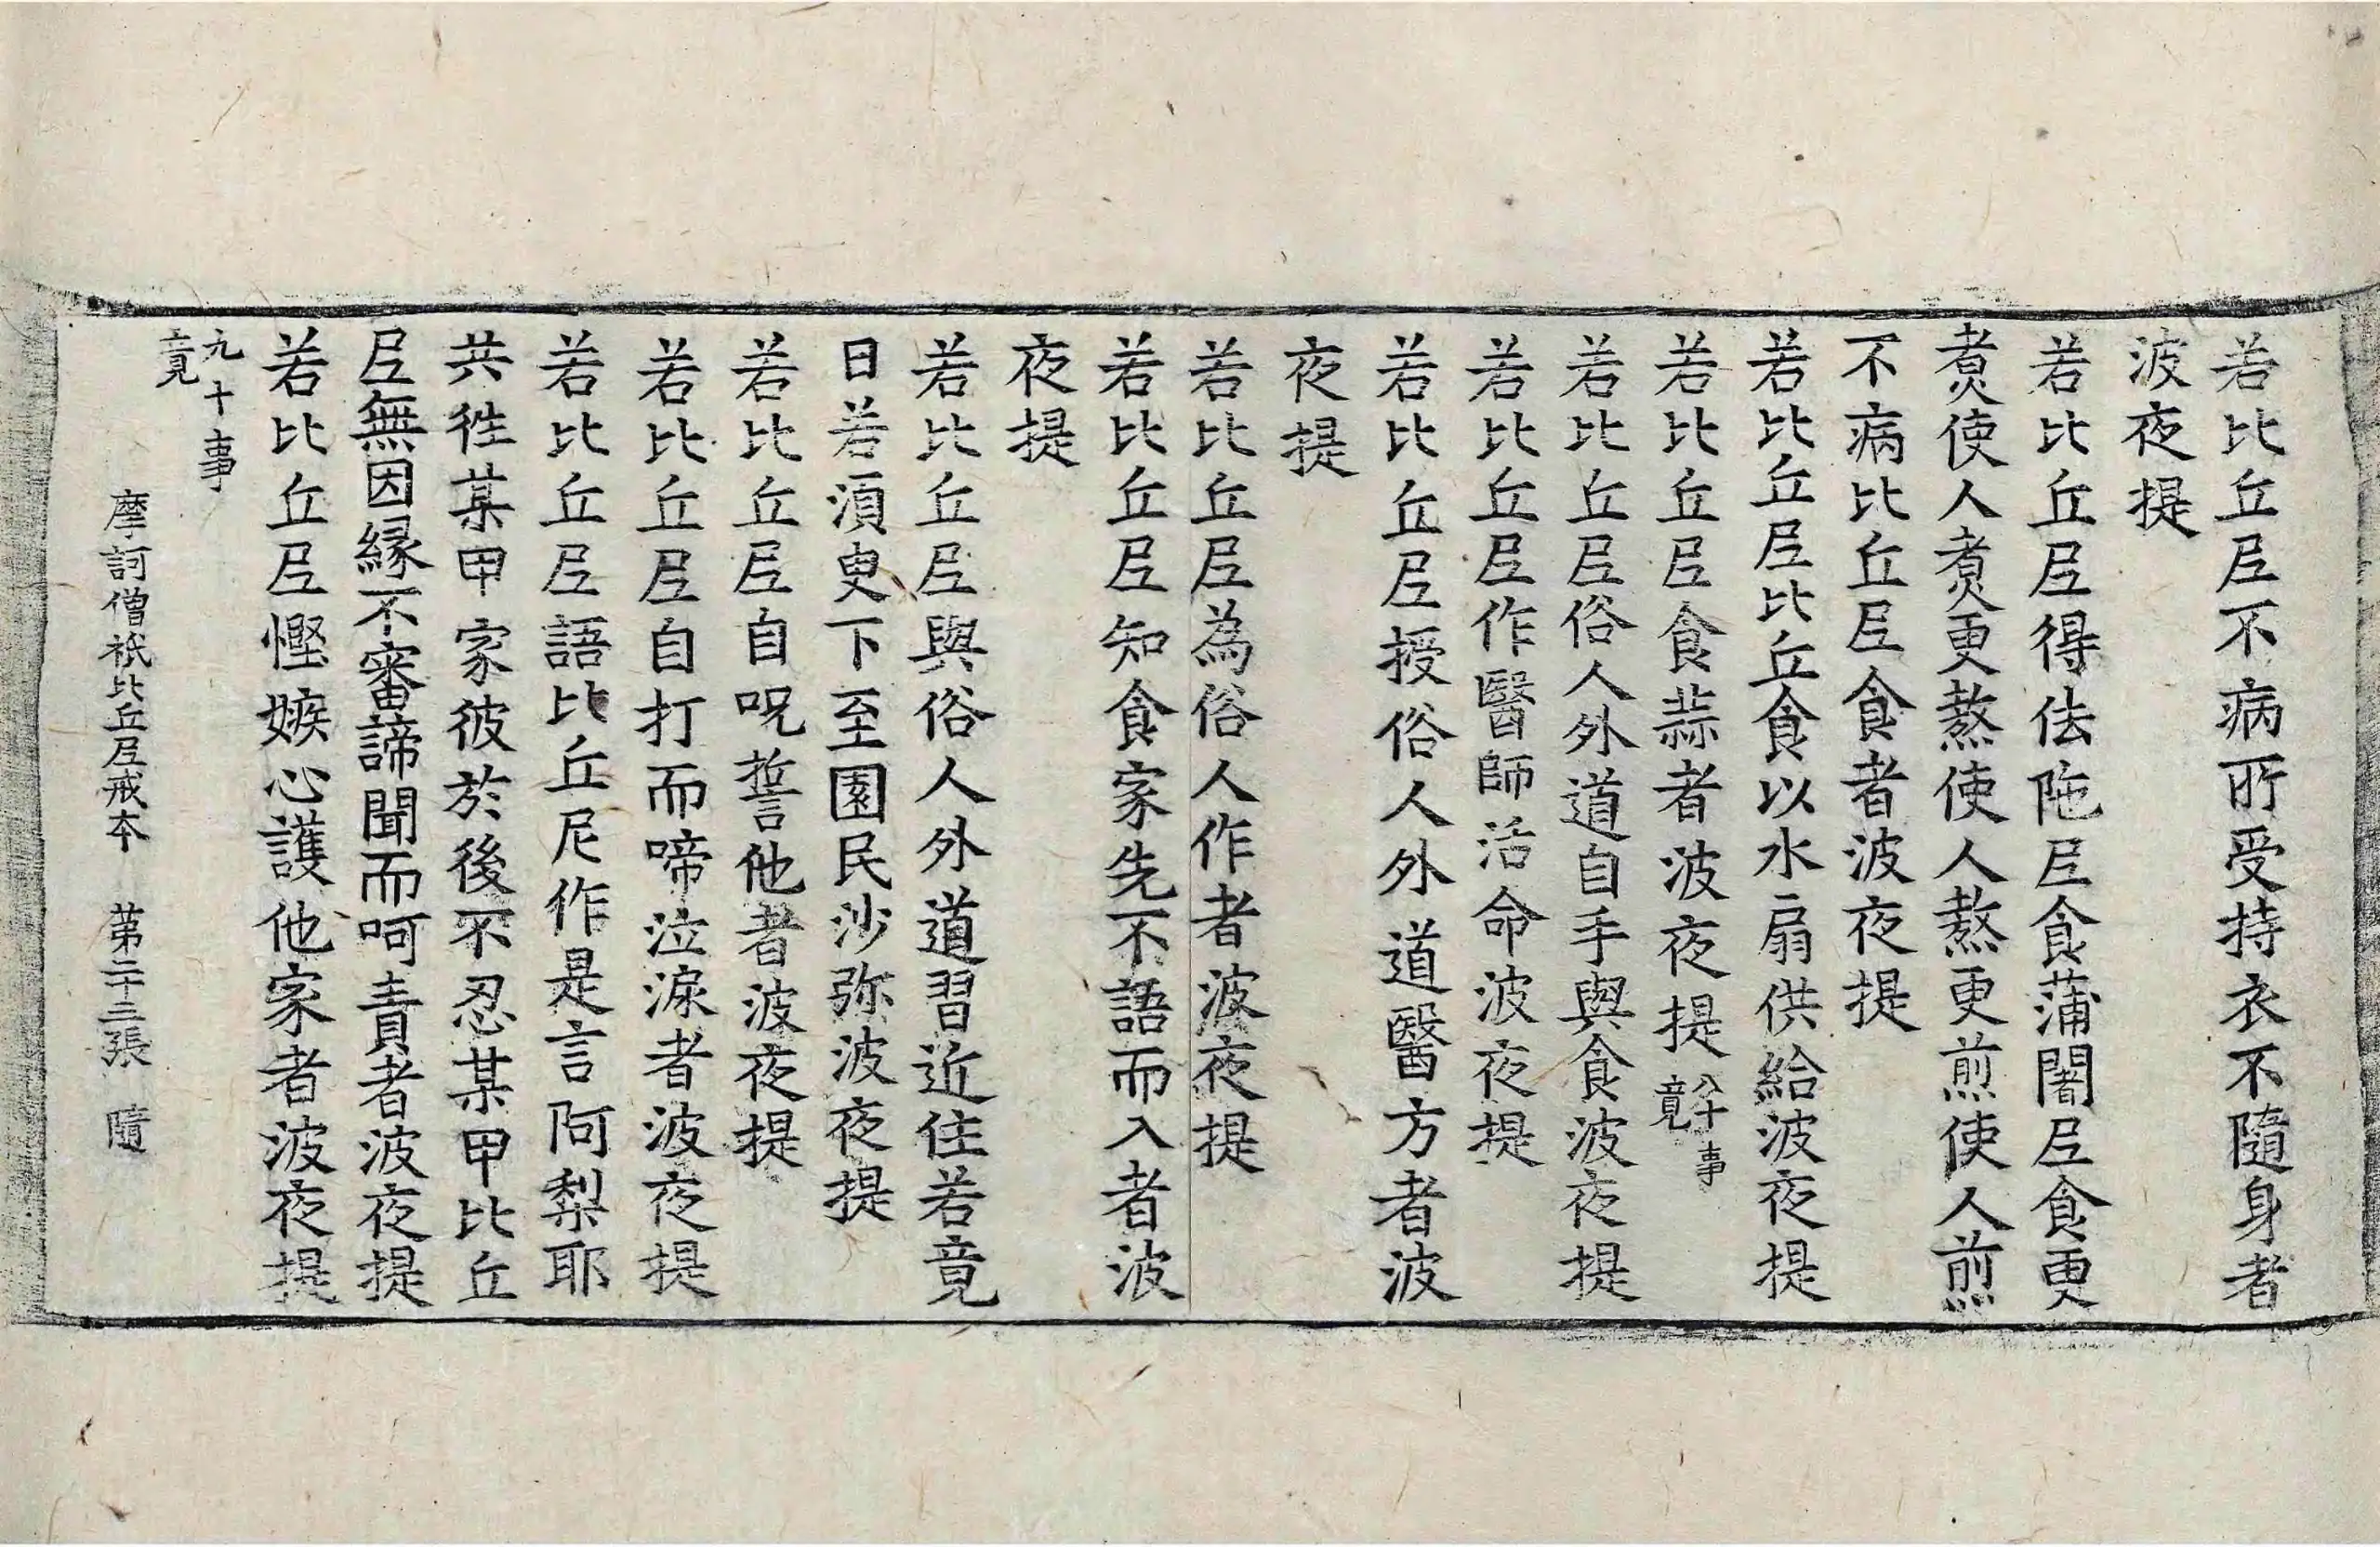 若比丘𡰱不病所受持衣不隨身者
波夜提
若比丘𡰱得佉陁𡰱食蒲闍𡰱食更
煑使人煑更熬使人熬更煎使人煎
不病比丘𡰱食者波夜提
若比丘𡰱比丘食以水扇供給波夜提
若比丘𡰱食蒜者波夜提八十事竟
若比丘𡰱俗人外道自手與食波夜提
若比丘𡰱作醫師活命波夜提
若比丘𡰱授俗人外道醫方者波
夜提
若比丘𡰱為俗人作者波夜提
若比丘𡰱知食家先不語而入者波
夜提
若比丘𡰱與俗人外道習近住若竟
日若湏臾下至園民沙弥波夜提
若比丘𡰱自呪誓他者波夜提
若比丘𡰱自打而啼泣淚者波夜提
若比丘𡰱語比丘尼作是言阿梨耶
共徃某甲家彼於後不忍某甲比丘
𡰱無因縁不審諦聞而呵責者波夜提
若比丘𡰱慳嫉心護他家者波夜提
九十事竟
摩訶僧祇比丘𡰱戒夲 苐二十三張 隨